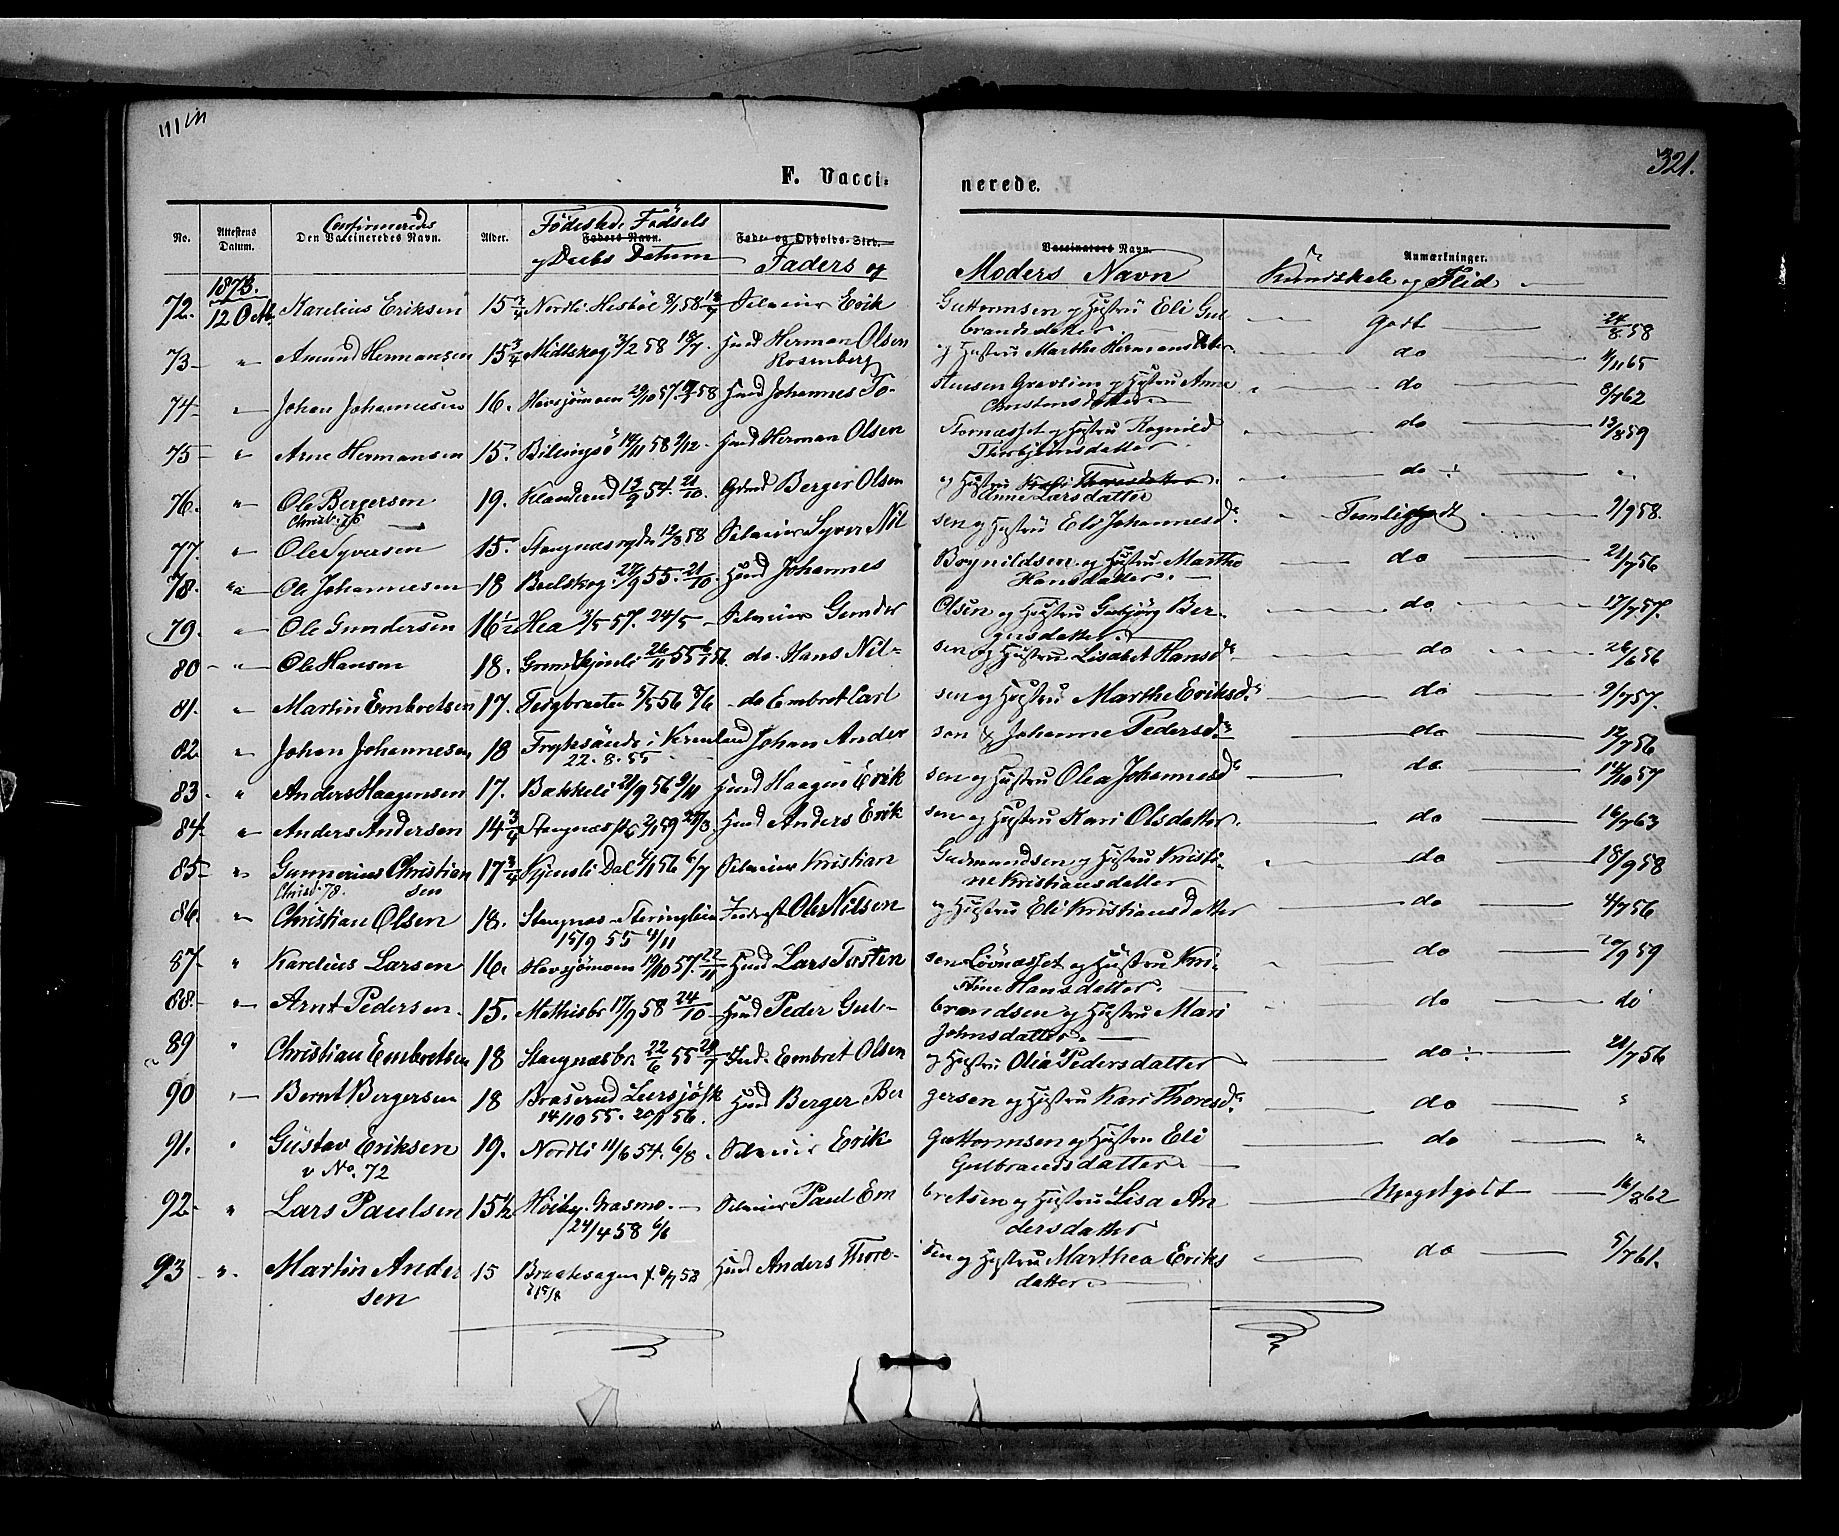 321.
F. Vacci- nerede.
No. Attestens Datum. Confirmeredes Den Vaccineredes Navn. Alder. Fødested Fødsels Faders Navn. og Daabs Datum Føde- og Opholds-Sted. Faders og Vaccinators Navn. Moders Navn Anmærkninger. Kundskab og Flid
1873.
72. 12 Oct. Karelius Eriksen 15 3/4 Nordli Hesbøl 8/1 58 Selveier Erik Guttormsen og Hustru Eli Gul- Godt 24/8 58
brandsdatter
73 " Amund Hermansen 15 3/4 Midtskog 3/2 58 Husmd Herman Olsen og Hustru Marthe Hermansdatter do 4/11 65
Rosenberg
74 " Johan Johannesen 16. Havsjömoen 29/10 57 Husmd Johannes To- stensen Gravlien og Hustru Anne do 9/7 62
Christensdatter
75 " Arne Hermansen 15. 14/11 58 9/12 Husmd Herman Olsen Stornæsset og Hustru Ragnild do 13/8 59
Thorbjörnsdatter
76. " Ole Bergersen 19. Klanderud 12/9 54. 21/10. Berger Olsen og Hustru Kari Thoresdatter do "
Christ. 76 Anne Larsdatter
77. " Ole Syversen 15. 12/3 58 Selveier Syver Nil sen og Hustru Eli Johannesd. Temmeliggodt 2/9 58.
78. " Ole Johannesen 18 Bælskog. 22/9 55. 21/10 Husmd Johannes Bognildsen og Hustru Marthe do 21/7 56
Hansdatter
79. " Ole Gundersen 16 1/2 Hea 2/5 57. 24/5 Selveier Gunder Olsen og Hustru Gubjörg Ber- do 17/7 57.
gersdatter
80 " Ole Hansen 18. 26/11 55 do. Hans Nil- sen og Hustru Lisabet Hansd. do 26/6 56
81. " Martin Embretsen 17. Teigbraaten 5/5 56 8/6 do Embret Carl sen og Hustru Marthe Eriksd. do 2/7 57.
82 " Johan Johannesen 18 Fryksände i Vermland Johan Ander sen & Johanne Pedersd. do 12/7 56
22. 8. 55
83 " Anders Haagensen 17. Bakkeli 21/9 56 9/11 Husmd Haagen Erik sen og Hustru Olea Johannesd. do 14/10 57
84 " Anders Andersen 14 3/4 2/1 59 27/3 Husmd Anders Erik sen og Hustru Kari Olsdatter do 16/7 63
85 " Gunnerius Christian 17 3/4 Kjensli Dal 4/1 56 6/7 Selveier Kristian Gudmundsen og Hustru Kristi- do 18/9 58
Christ: 78. sen ne Kristiansdatter
86. " Christian Olsen 18. Stangnæs Ole Nilsen og Hustru Eli Kristiansdatter do 4/7 56
15/9 55 4/11
87 " Karelius Larsen 16. Havsjömoen 19/10 57. 22/11 Husmd Lars Tosten sen Lövnæsset og Hustru Kri- do 20/9 59
stine Hansdatter
88 " Arnt Pedersen 15. Mathisbr 17/9 58 24/10 Husmd Peder Gul- brandsen og Hustru Mari do do
Johnsdatter
89 " Christian Embretsen 18 Stangnæsbr. 22/6 55 29/7 Embret Olsen og Hustru Olia Pedersdatter do 21/7 56
90 " Bernt Bergersen 18 Braserud Husmd Berger Ber gersen og Hustru Kari Thoresd. do "
14/10 55. 20/1 56.
91. " Gustav Eriksen 19. Nordli 11/6 54. 6/8 Selveier Erik Guttormsen og Hustru Eli do "
v No. 72 Gulbrandsdatter
92 " Lars Paulsen 15 1/2 Höiby Grasmo Selveier Paul Em bretsen og Hustru Lisa An Megetgodt 16/8 62
24/4 58 6/6 dersdatter
93 " Martin Ander 15 58 Husmd Anders Thore- sen og Hustru Marthea Eriks do 5/7 61.
sen datter